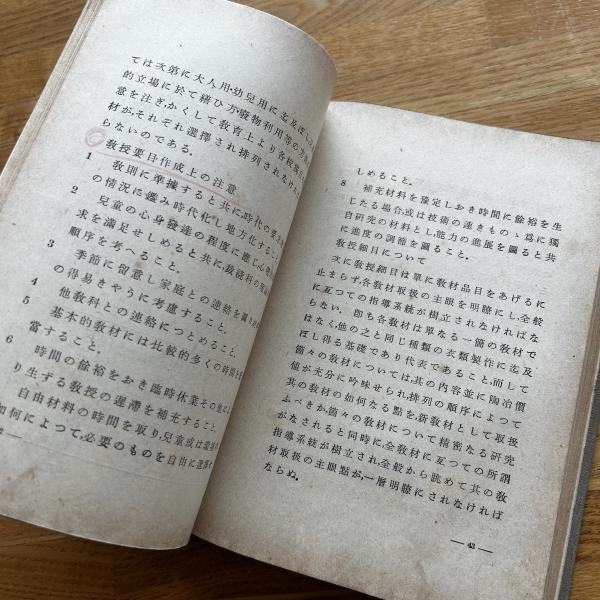 ては次第に大人用・幼兒用に迄及ぼし
的立場に於て繕ひ方・廢物利用等の方面
意を注ぎ、かくして教育上より各枝
材が、それぞれ選擇され排列されなけれ
らないのである。
教授要目作成上の注意
1 教則に準據すると共に、時代の要求
の情況に鑑み時代化し地方化すること
2 兒童の心身發達の程度に應じ心理
求を滿足せしめると共に、裁縫科の
順序を考へること。
3 季節に留意し家庭との連絡を圖り
の得易きやうに考慮すること。
4 他教科との連絡につとめること。
5 基本的教材には比較的多くの時間を
當すること。
6 時間の餘裕をおき臨時休業その他に
り生ずる教授の遲滯を補充すること。
自由材料の時間を取り、兒童或は
如何によつて、必要のものを自由に選擇
しめること。
8 補充材料を豫定しおき時間に餘裕を生
じたる場合、或は技術の速きものゝ爲に獨
自研究の材料とし、能力の進展を圖ると共
に進度の調節を圖ること。
教授細目について
次に教授細目は單に教材品目をあげるに
止まらず、各教材取扱の主眼を明瞭にし、全般
に亙つての指導系統が樹立されなければな
らない。即ち各教材は單なる一箇の教材で
はなく、他の之と同じ種類の衣類製作に迄及
ぼし得る基礎であり代表であること、而して
箇々の教材については、其の內容並に陶冶價
値が充分に吟味せられ排列の順序によつて
其の教材の如何なる點を新教材として取扱
ふべきか、箇々の教材について精密なる研究
がなされると同時に、全教材に亙つての所謂
指導系統が樹立され、全般から眺めて其の教
材取扱の主眼點が、一層明瞭にされなければ
ならぬ。
— 43 —